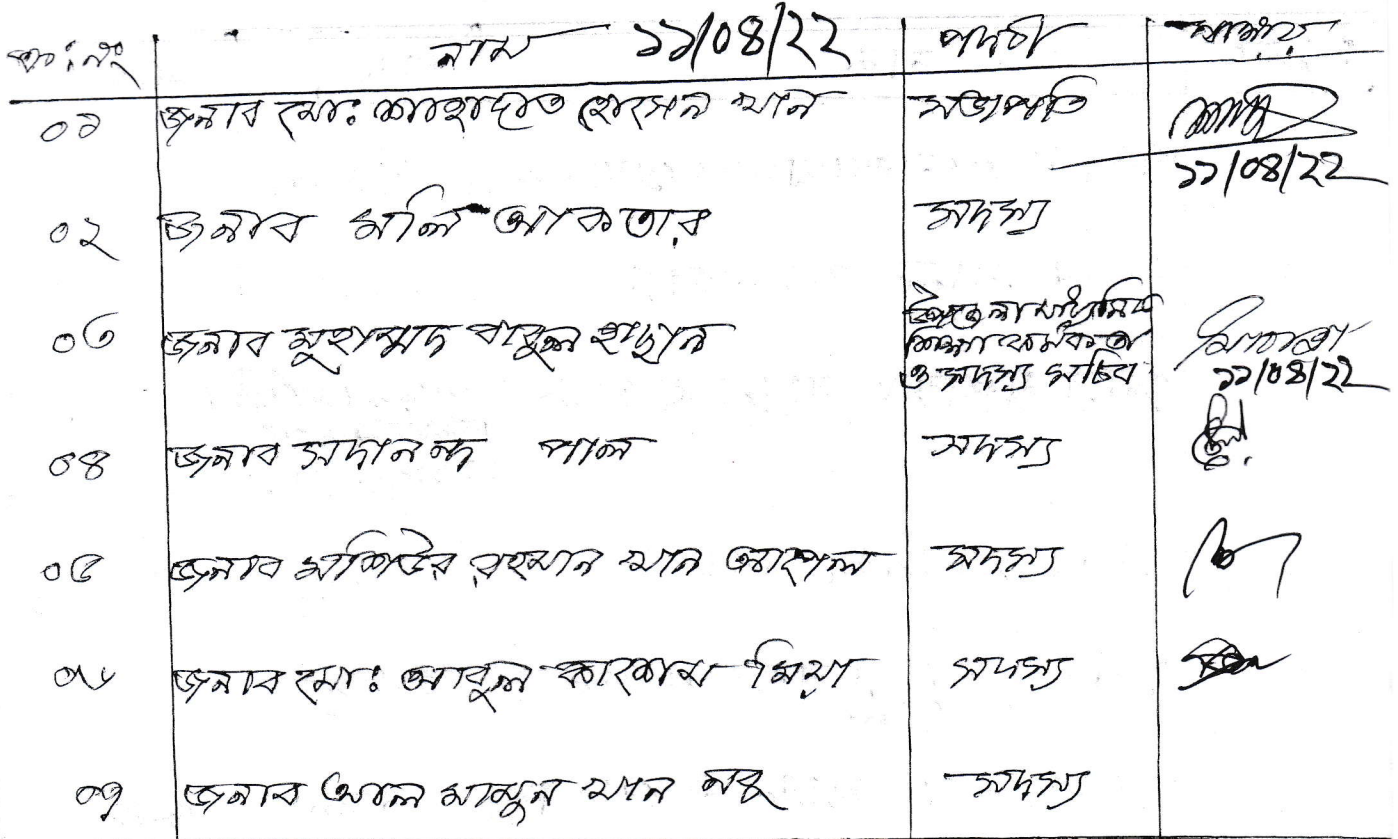 ক্র:নং নাম ১১/০৪/২২ পদবী স্বাক্ষর
০১ জনাব মো: শাহাদাত হোসেন খান সভাপতি
১১/০৪/২২
০২ জনাব মলি আকতার সদস্য
০৩ জনাব মুহাম্মদ বাবুল হাছান উপজেলা মাধ্যমিক
শিক্ষা কর্মকর্তা
ও সদস্য সচিব
১১/০৪/২২
০৪ জনাব সদানন্দ পাল সদস্য
০৫ জনাব মশিউর রহমান খান আপেল সদস্য
০৬ জনাব মো: আবুল কাশেম মিয়া সদস্য
০৭ জনাব আল মামুন খান সদস্য